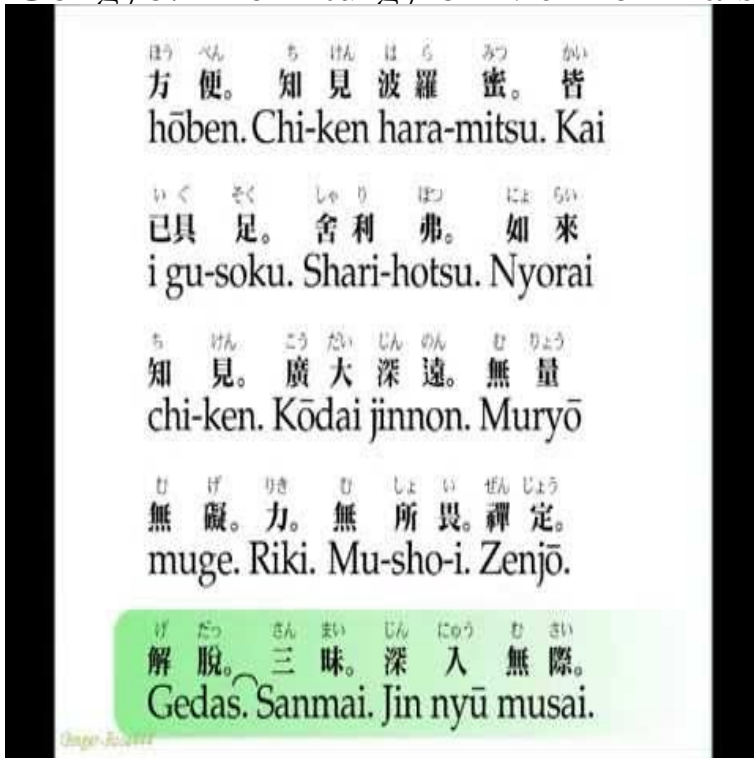 ほう べん ち けん は ら みつ かい
方 便。 知 見 波 羅 蜜。 皆
hōben. Chi-ken hara-mitsu. Kai
い ぐ そく しゃ り ほつ にょ らい
已具 足。 舍 利 弗。 如 來
i gu-soku. Shari-hotsu. Nyorai
ち けん こう だい じん のん む りょう
知 見。 廣 大 深 遠。 無 量
chi-ken. Kōdai jinnon. Muryō
む げ りき む しょ い ぜん じょう
無 礙。 力。 無 所 畏。 禪 定。
muge. Riki. Mu-sho-i. Zenjō.
げ だっ さん まい じん にゅう む さい
解 脫。 三 昧。 深 入 無 際。
Gedas. Sanmai. Jin nyū musai.